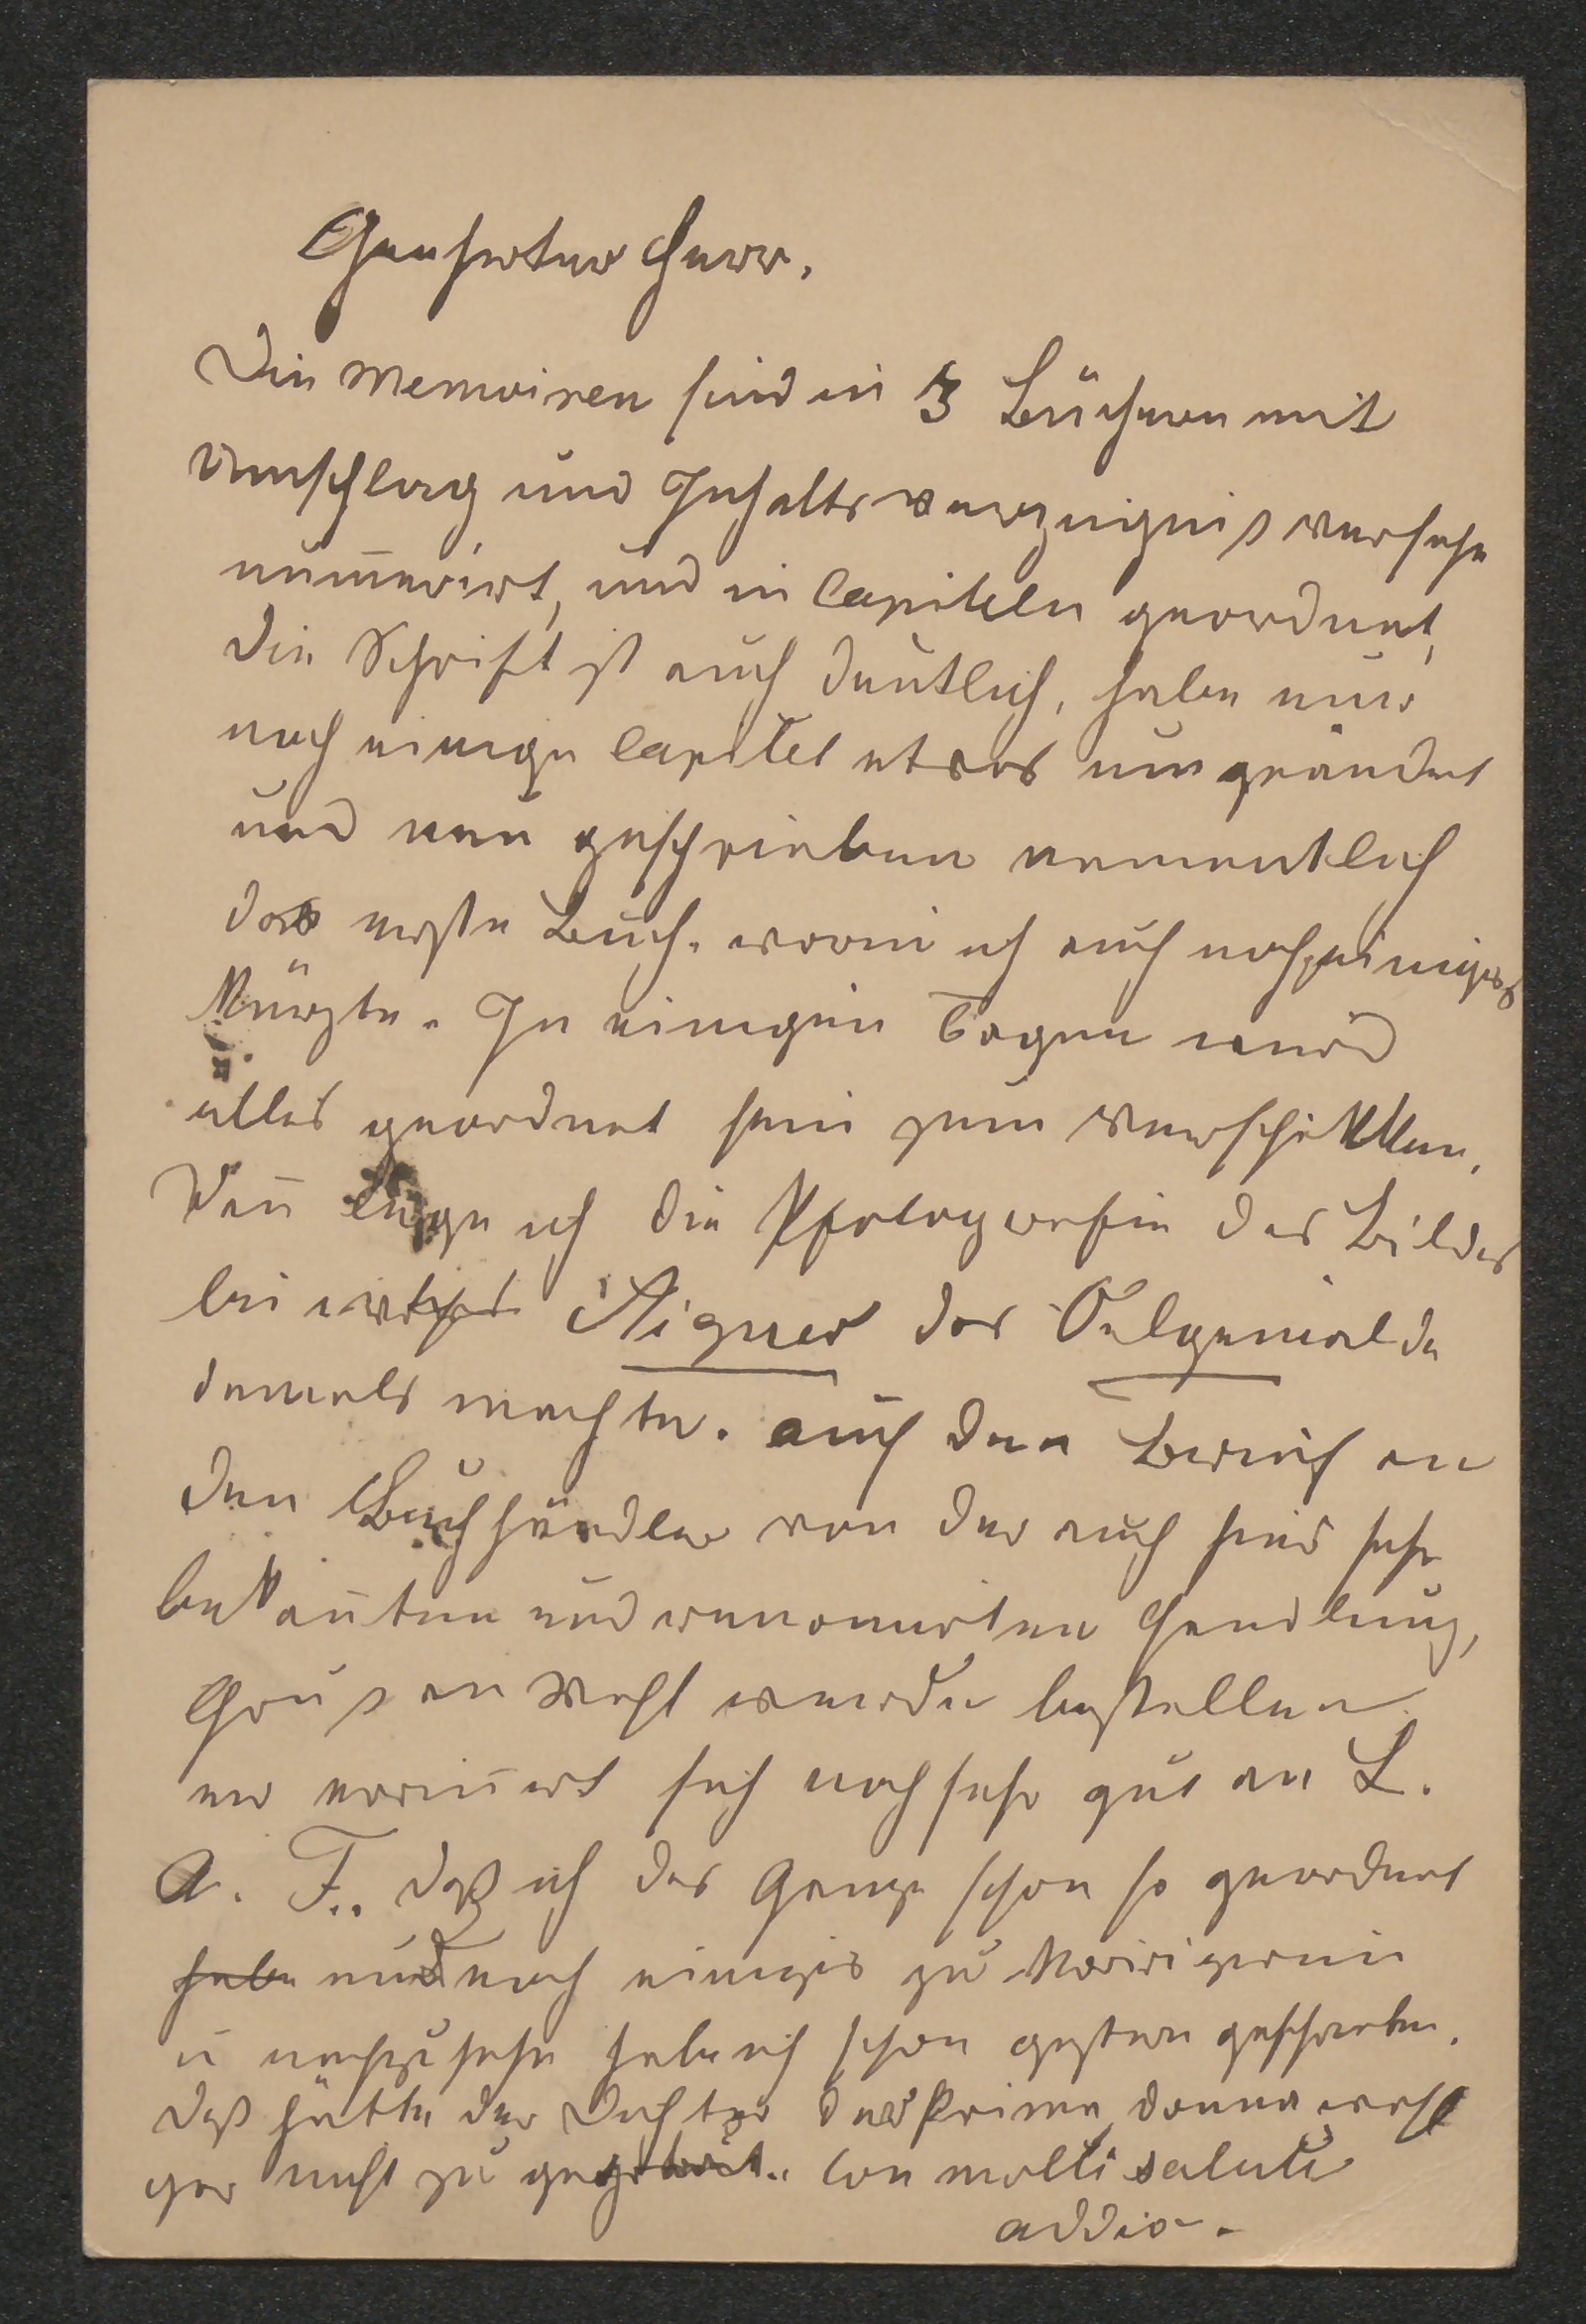 Geehrter Herr.
Die Memoiren sind in 3 Büchern mit
Umschlag und Inhaltsverzeignis versehn
num̅erirt, und in Capiteln geordnet,
die Schrift ist auch deutlich, habe nur
noch einige Capitel etwas umgeändert
und neu geschrieben namentlich
das erste Buch. worin ich auch noch einiges
kürzte. In einigen Tagen wird
alles geordnet sein zum verschikken.
Den̅ lege ich die Photografie des Bildes
bei Aigner das Oelgemälde
damals machte. auch den Brief an
den Buchhändler von der auch hier sehr
bekan̅ten und renomirten Handlung,
Grus an Wehl werde bestellen
er erin̅ert sich noch sehr gut an L.
A. F.. daß ich das Ganze schon so geordnet
habe und noch einiges zu korrigieren
u nachzusehn habe ich schon gestern geschrieben.
daß hätte der Dichter der Prima donna wohl
gar nicht zu getraut.. Con molti saluti
addio.